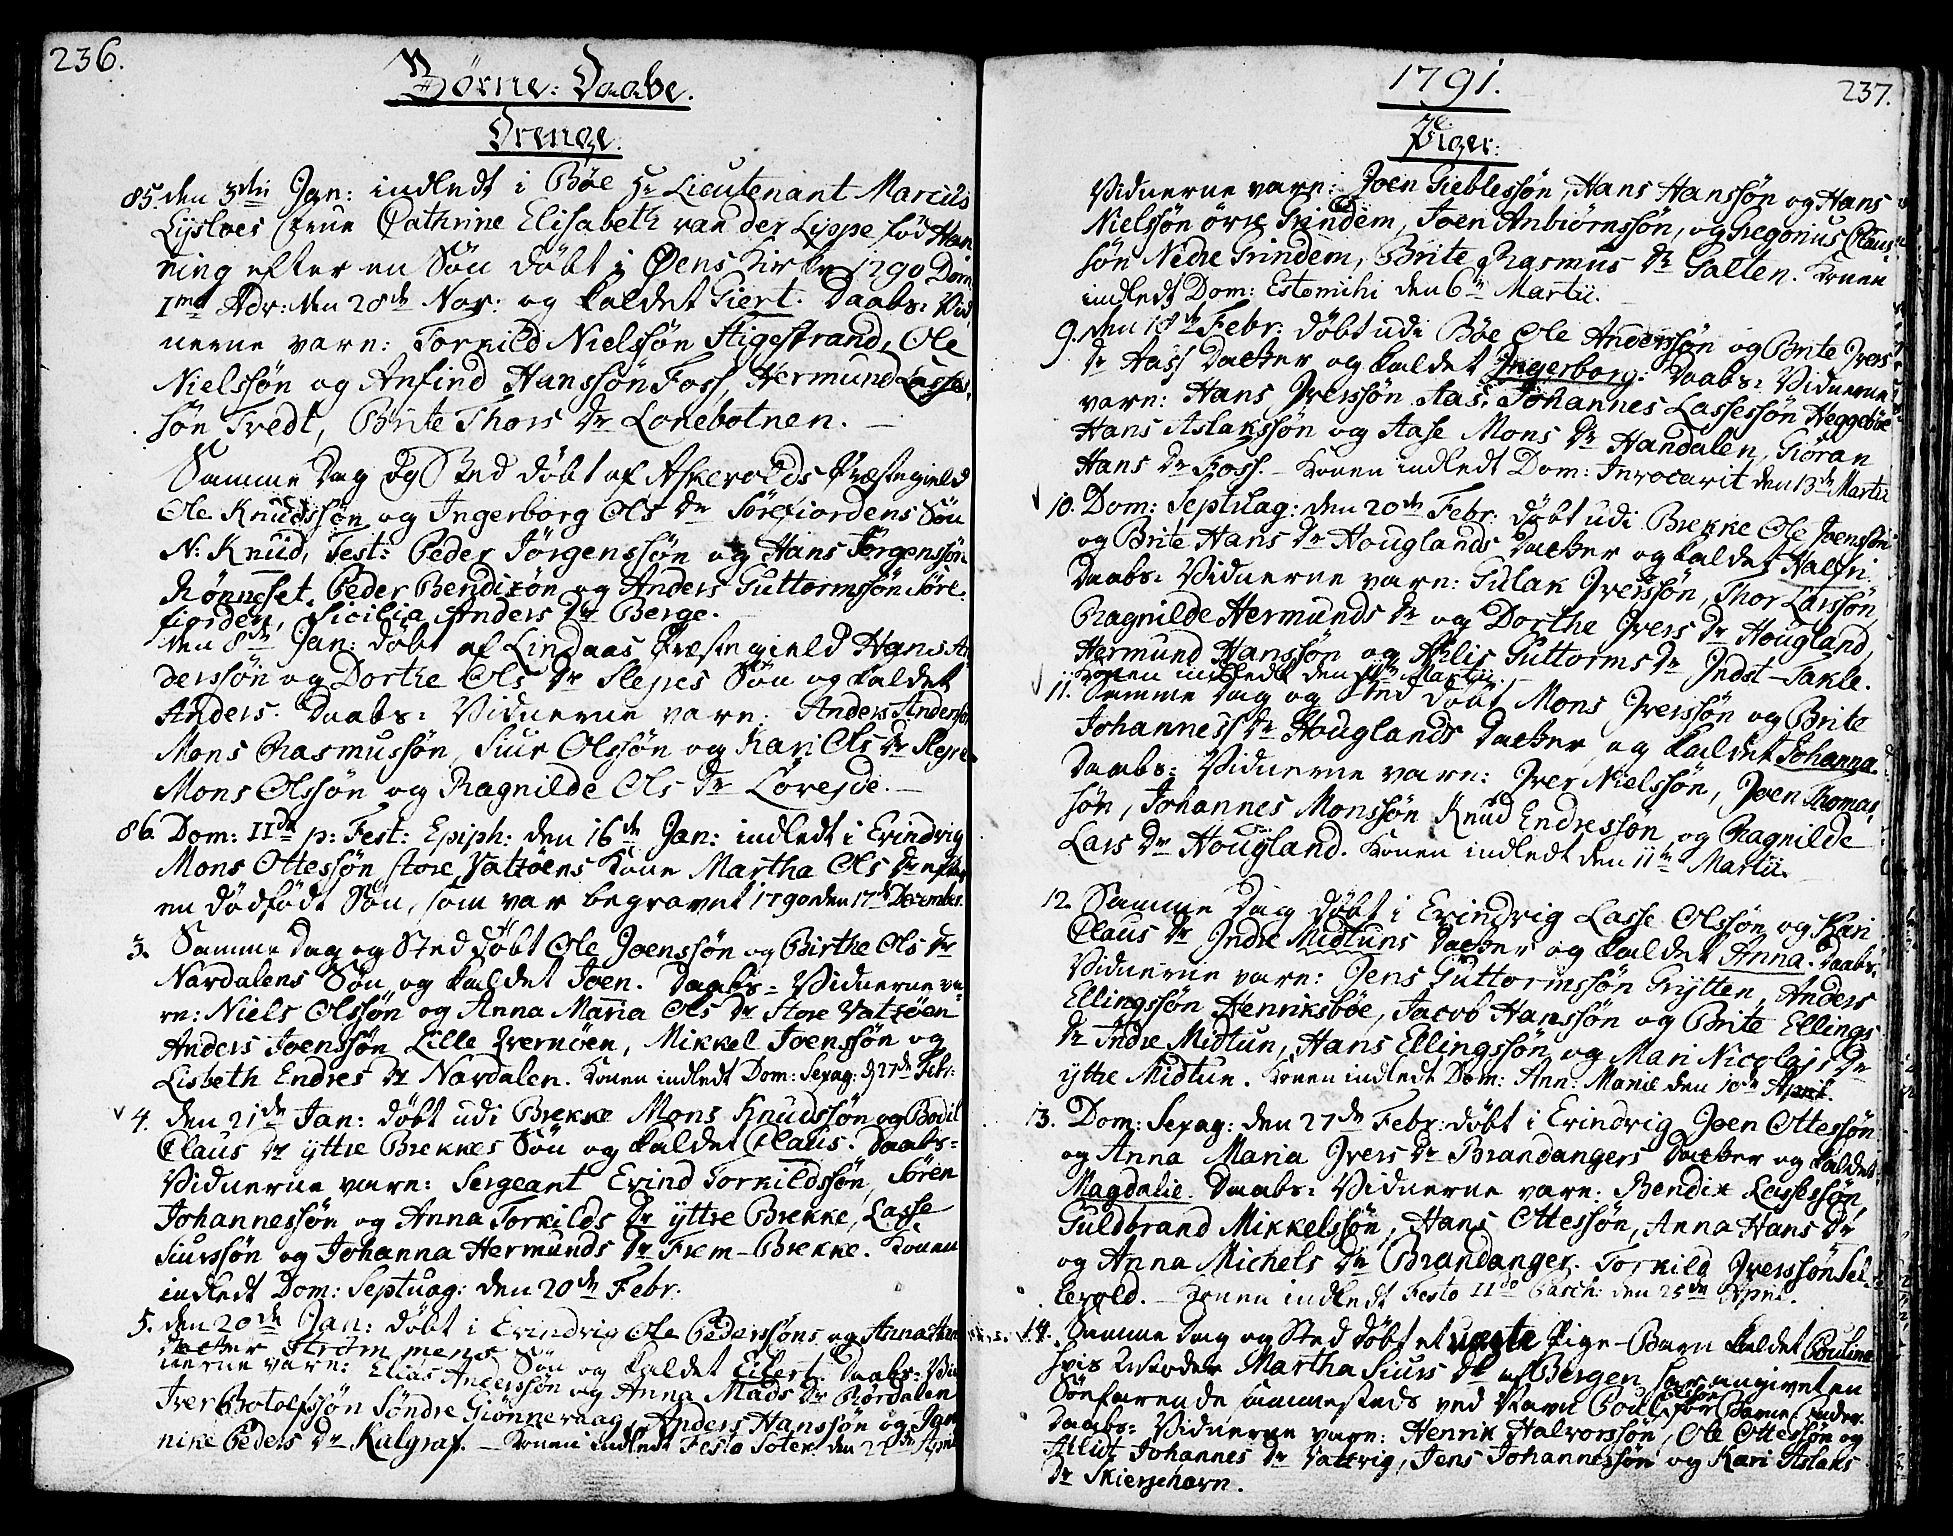 236.
Børne-Daabe.
Drenge.
85. den 3die Jan: indledt i Bøe Hr Lieutenant Marcus
Lyslves Frue Cathrine Elisabeth van der Lippe fød Han
ning efter en Søn døbt i Øens Kirke 1790 Dom
Ima Adv: den 28de Nov: og kaldet Giert. Daabs-Vid
nerne vare: Torkild Nielssøn Stigestrand, Ole
Nielssøn og Anfind Hanssøn Foss, Hermund Lasses-
søn Tredt, Brite Thors Dr Lonebotnen. —
Samme Dag og Sted døbt af Askevolds Præstegield
Ole Knudssøn og Ingerborg Ols Dr Sørefiordens Søn
N: Knud, Test: Peder Jørgenssøn og Hans Jørgenssøn
Rønneset, Peder Bendixøn og Anders Guttormssøn Søre-
fiorden, Sicilia Anders Dr Berge.
den 8de Jan: døbt af Lindaas Præstegield Hans An
derssøn og Dorthe Ols Dr Slepes Søn og kaldet
Anders. Daabs-Vidnerne vare: Anders Anderssøn
Mons Rasmussøn, Siur Olssøn og Kari Ols Dr Slepe
Mons Olssøn og Ragnilde Ols Dr Løvejde. —
86. Dom: IIda p: Fest: Epiph: den 16de Jan: indledt i Evindvig
Mons Ottessøn store Vatzøens Kone Martha Ols Dr efter
en dødfødt Søn, som var begravet 1790 den 17de December.
3. Samme Dag og Sted døbt Ole Joenssøn og Birthe Ols Dr
Nardalens Søn og kaldet Joen. Daabs-Vidnerne va-
re: Niels Olssøn og Anna Maria Ols Dr Store Vatzøen
Anders Joenssøn Lille Hvernøen, Mikkel Joenssøn og
Lisbeth Endres Dr Nardalen. Konen indledt Dom: Sexag: d 27de Febr:
4. den 21de Jan: døbt udi Brekke Mons Knudssøn og Bodil
Claus Dr yttre Brekkes Søn og kaldet Claus. Daabs-
Vidnerne vare: Sergeant Evind Torkildssøn, Søren
Johannessøn og Anna Torkilds Dr yttre Brekke, Lasse
Siurssøn og Johanna Hermunds Dr Frem-Brekke. Konen
indledt Dom: Septuag: den 20de Febr.
5. den 20de Jan: døbt i Evindvig Ole Pederssøns og Anna
Strømmens Søn og kaldet Eilert. Daabs-Vid
nerne vare: Elias Anderssøn og Anna Mads Dr Rørdalen
Iver Botolfssøn Søndre Giønnevaag, Anders Hanssøn og Jan
nike Peders Dr Kulgraf. — Konen indledt Festo Soter den 22de April
1791.
237.
Piger:
Vidnerne vare: Joen Gieblessøn, Hans Hanssøn og Hans
Nielssøn øvre Grindem, Joen Anbiørnssøn, og Gregorius Claus-
søn Nedre Grindem, Brite Rasmus Dr Galten. Konen
indledt Dom: Estomihi den 6te Martii. —
9. den 18de Febr: døbt udi Bøe Ole Anderssøn og Brite Ivers
Dr Aass Datter og kaldet Ingerborg. Daabs-Vidnerne
vare: Hans Iverssøn Aas, Johannes Lassessøn Heggebøe
Hans Aslakssøn og Aase Mons Dr Handalen, Giøran
Hans Dr Foss. — Konen indledt Dom: Invocavit den 13de Martii
10. Dom: Septuag: den 20de Febr: døbt udi Brekke Ole Joenssøn
og Brite Hans Dr Houglands Datter og kaldet Halfri.
Daabs-Vidnerne vare: Gulak Iverssøn, Thor Larssøn,
Ragnilde Hermunds Dr og Dorthe Ivers Dr Hougland,
Hermund Hanssøn og Aelis Guttorms Dr Indst-Takle.
Konen indledt den 11te Martii.
11. Samme Dag og Sted døbt Mons Iverssøn og Brite
Johanness Dr Houglands Datter og kaldet Johanna.
Daabs-Vidnerne vare: Iver Nielssøn, Joen Thomas-
søn, Johannes Monssøn Knud Endressøn og Ragnilde
Lars Dr Hougland. Konen indledt den 11te Martii.
12. Samme Dag døbt i Evindvig Lasse Olssøn og Kari
Claus Dr Indre Midtuns Datter og kaldet Anna. Daabs-
Vidnerne vare: Jens Guttormssøn Grytten, Anders
Ellingssøn Henriksbøe, Jacob Hanssøn og Brite Ellings
Dr Indre Midtun, Hans Ellingssøn og Mari Nicolaj Dr
yttre Midtun. Konen indledt Dom: Ann: Mariæ den 10de April.
13. Dom: Sexag: den 27de Febr: døbt i Evindvig Joen Ottessøn
og Anna Maria Ivers Dr Brandangers Datter og kaldet
Magdalie. Daabs-Vidnerne vare: Bendix Lassessøn,
Guldbrand Mikkelssøn, Hans Ottessøn, Anna Hans Dr
og Anna Michels Dr Brandanger. Torkild Iverssøn Sel-
levold. — Konen indledt Festo IIdo Pasch: den 25de April.
14. Samme Dag og Sted døbt et uægte Pige-Barn kaldet Pouline
hvis Moder Martha Siurs Dr af Bergen har angivet en
Søefarende sammesteds ved Navn Poul for Barne-Fader.
Daabs-Vidnerne vare: Henrik Halvorssøn, Ole Ottessøn og
Allut Johannes Dr Vattvig, Jens Johannessøn og Kari Aslaks
Dr Skiersehavn.